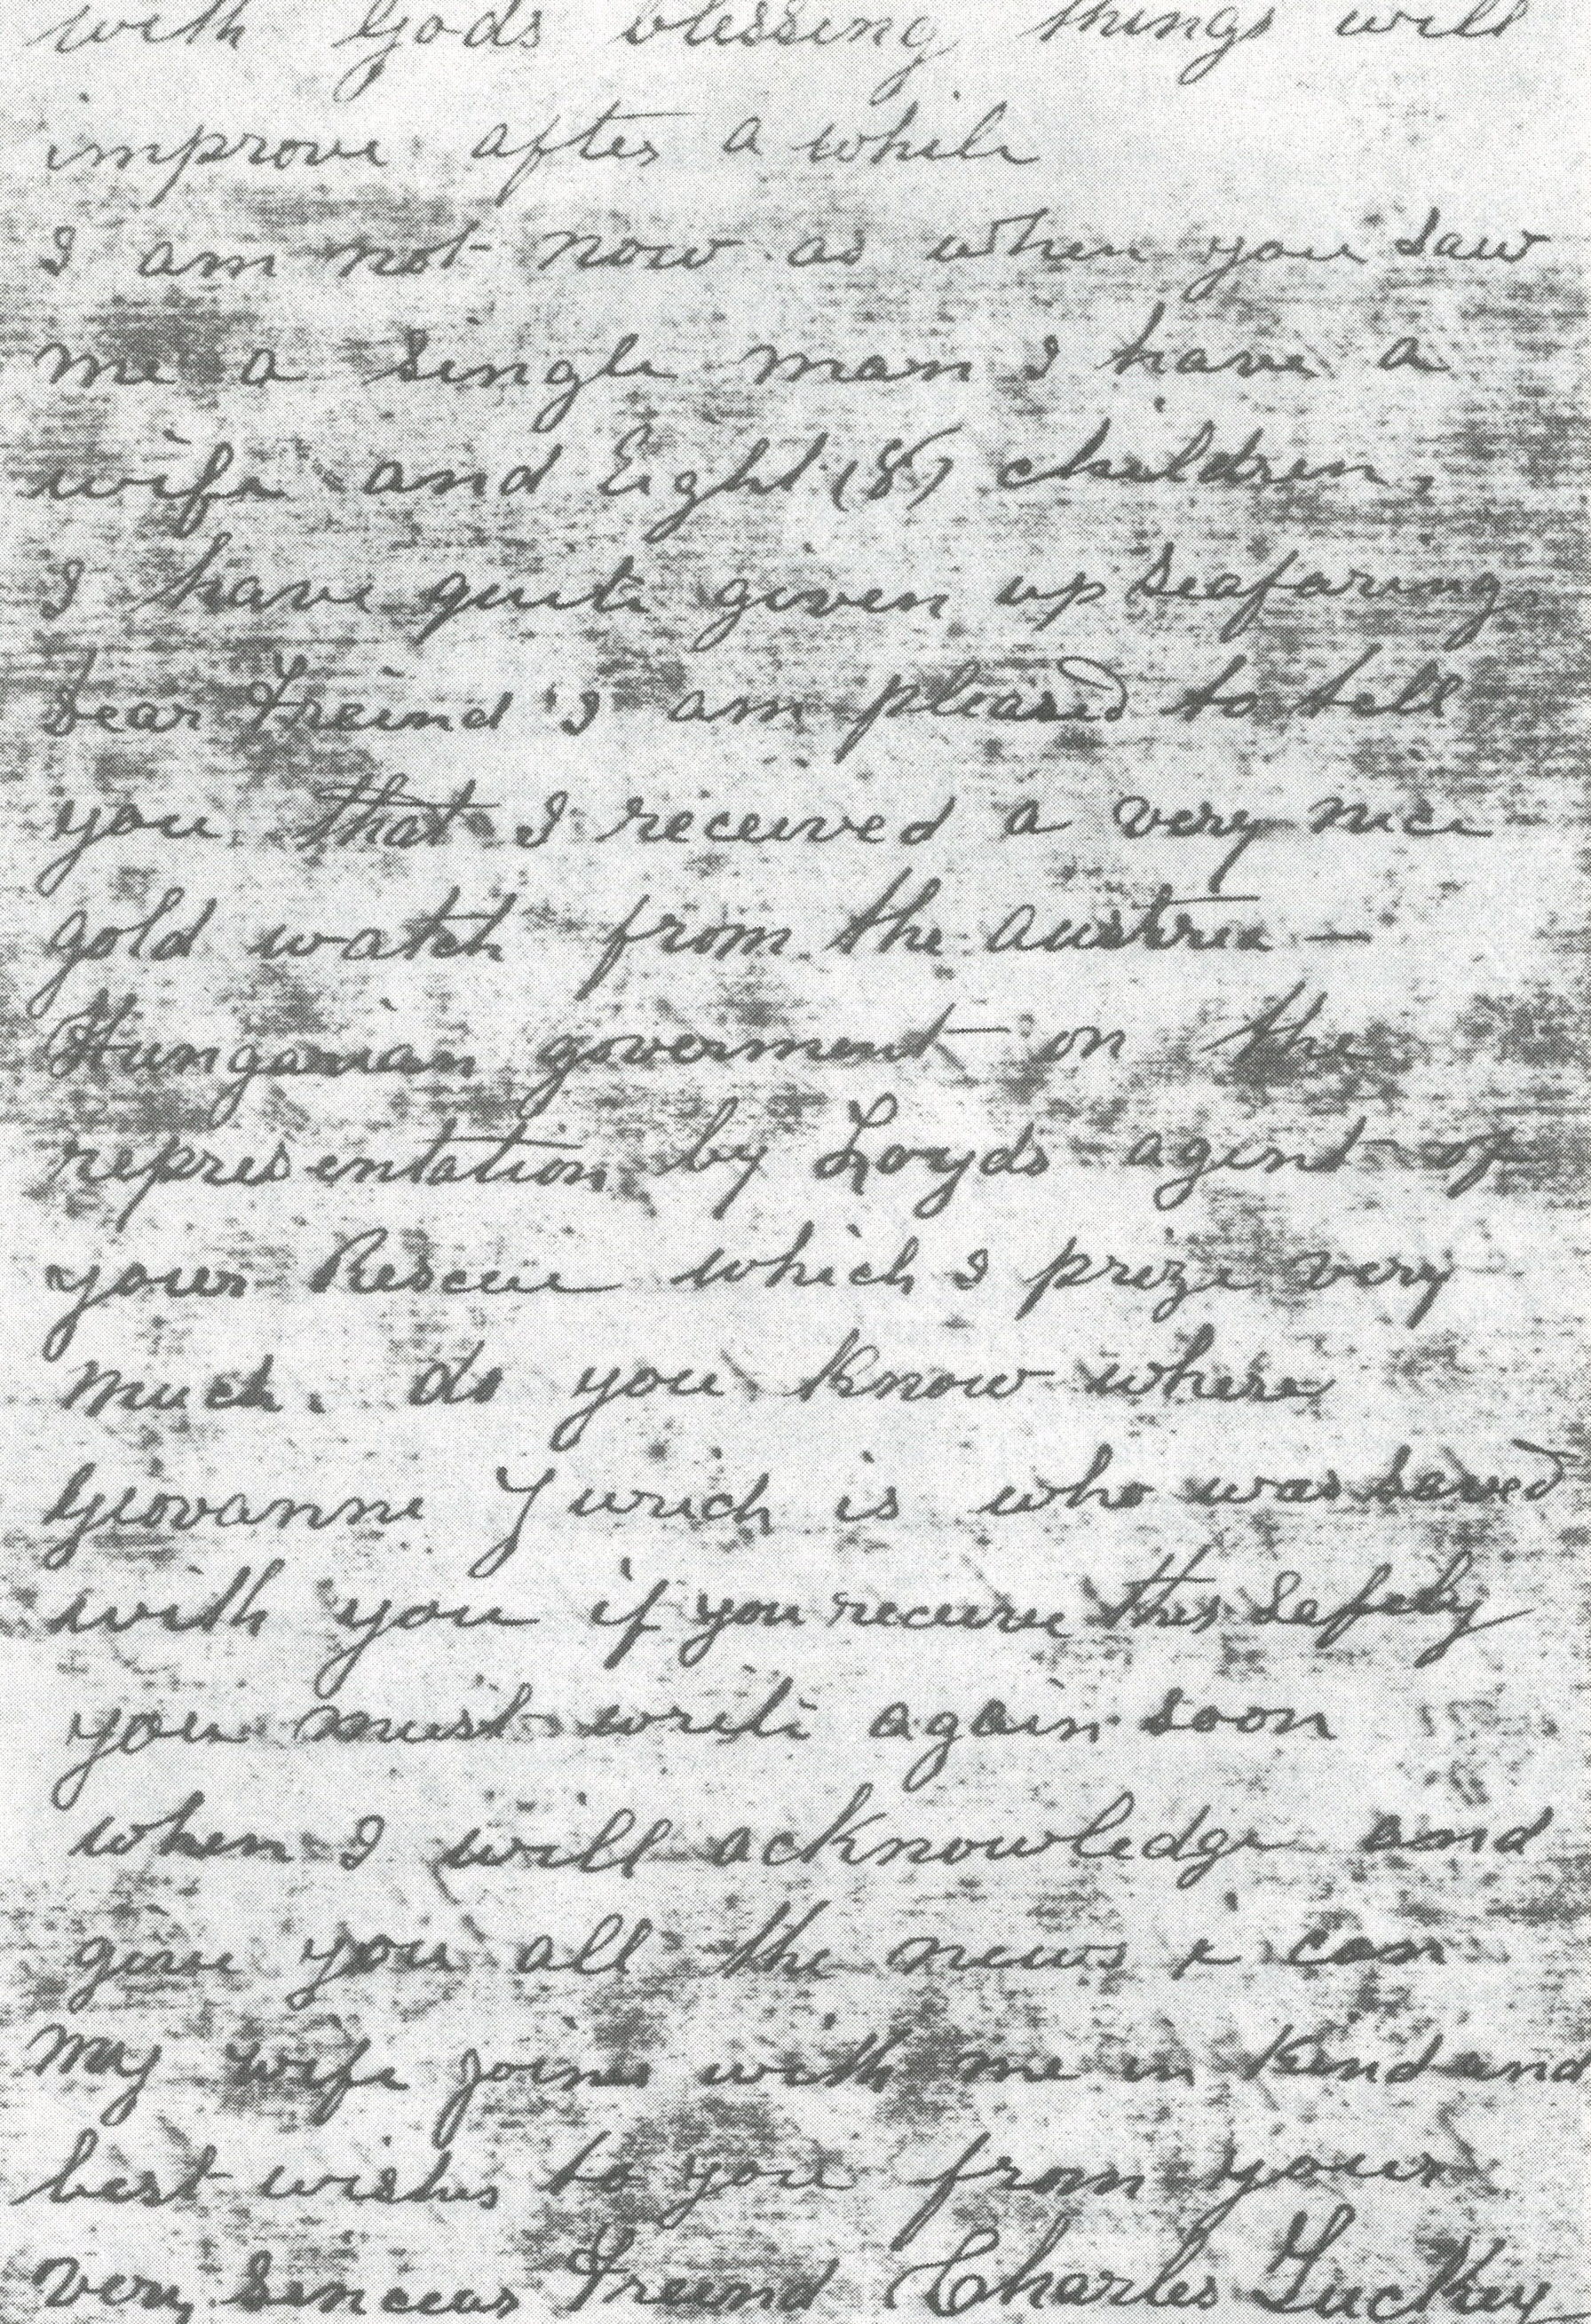 with Gods blessing things will
improve after a while
I am not now as when you saw
me a single man I have a
wife and Eight (8) children,
I have quite given up Seafaring,
Dear Freind I am pleased to tell
you that I received a very nice
gold watch from the Austria —
Hungarian goverment — on the
representation by Loyds agent of
your Rescue which I prize very
much. do you know where
Giovanni Jurich is who was saved
with you if you receive this Safely
you must write again soon
when I will acknowledge and
give you all the news i can
My wife joines with me in Kind and
best wishes to you from your
very Sincear Freind Charles Tuckey